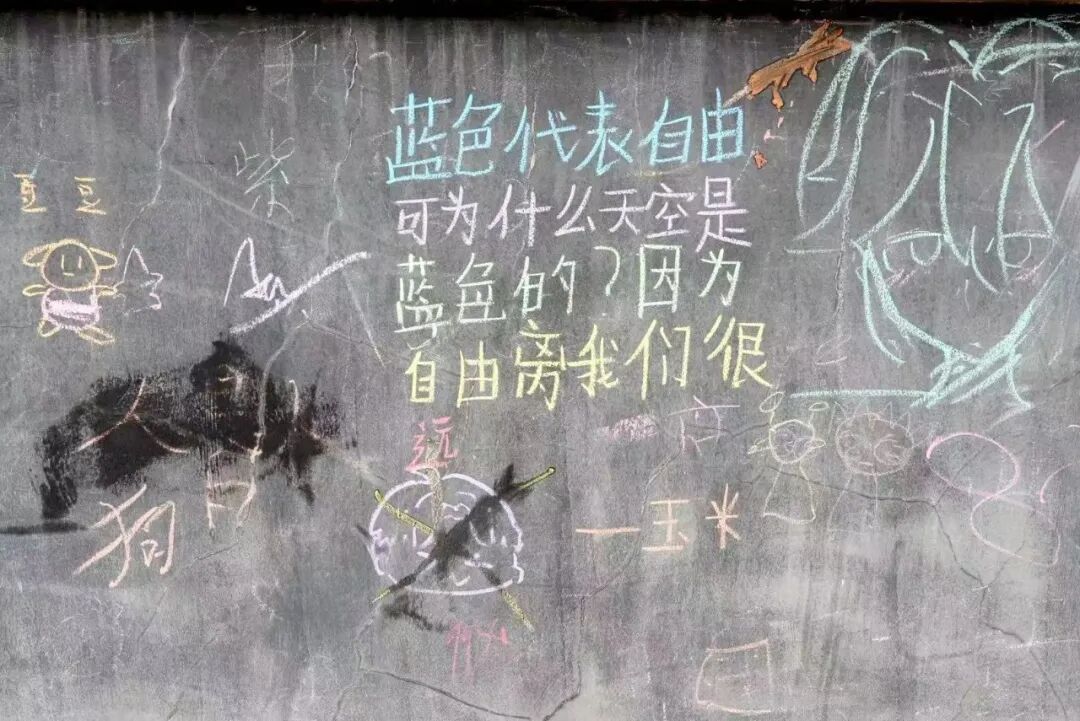 蓝色代表自由
可为什么天空是
蓝色的？因为
自由离我们很
远
豆豆
柴
人
狗
一玉米